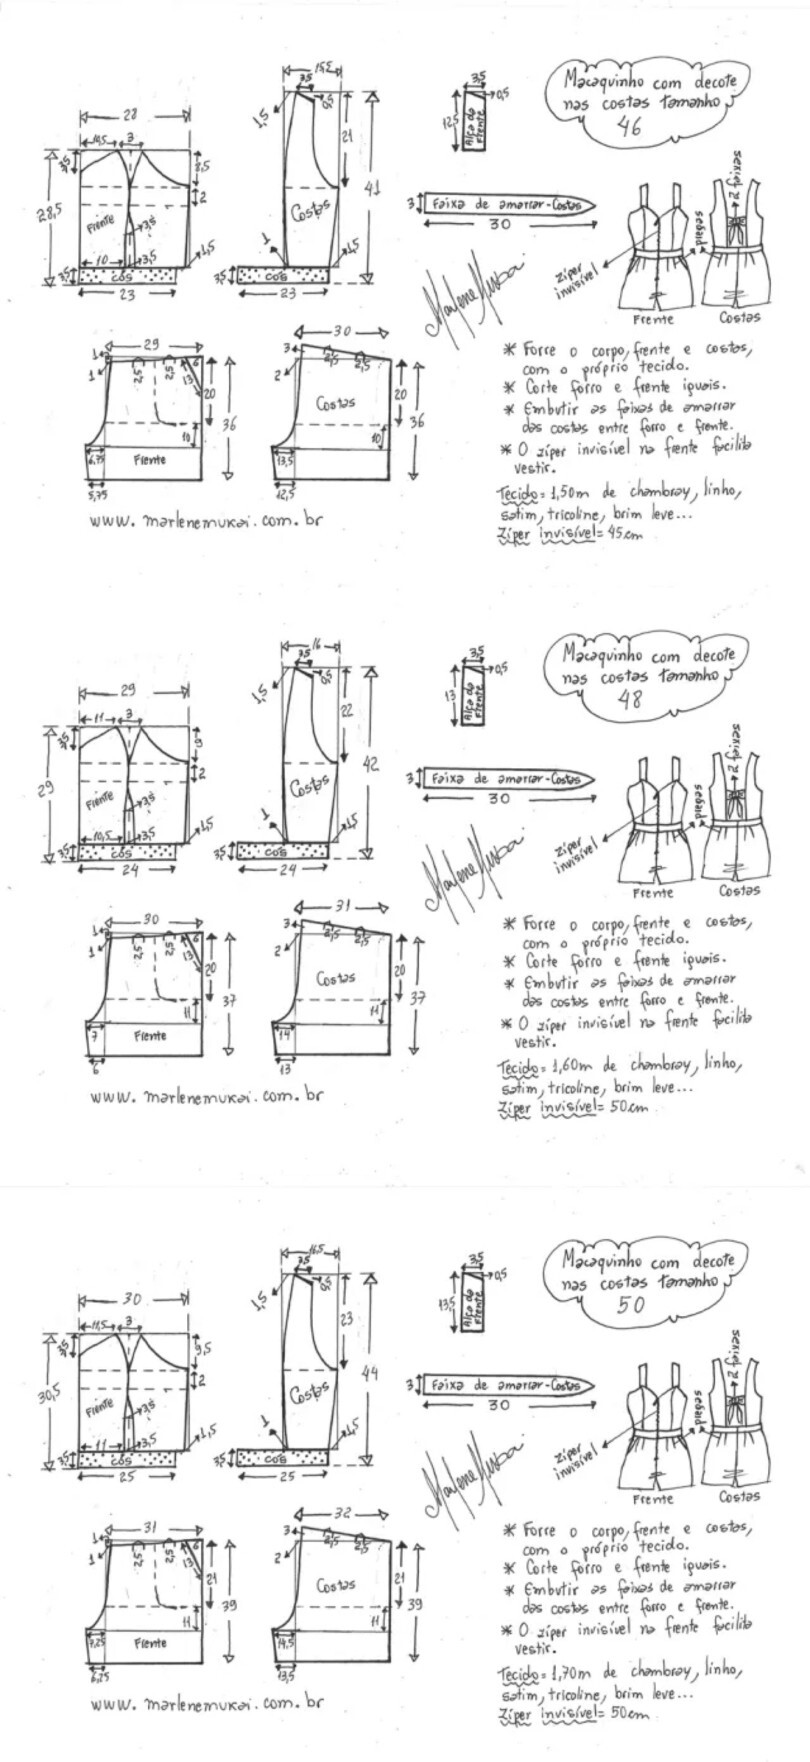 28
14,5
3
3,5
8,5
2
28,5
Frente
3,5
10
3,5
1,5
3,5
cós
23
15,5
3,5
0,5
1,5
21
41
Costas
1
1,5
3,5
cós
23
3,5
0,5
12,5
Alça da
Frente
Macaquinho com decote
nas costas tamanho
46
3
Faixa de amarrar-Costas
30
2 faixas
zíper
invisível
Frente
Costas
29
1
1
2,5
2,5
13
6
20
36
10
6,75
Frente
5,75
30
3
2
2,5
2,5
Costas
20
36
10
13,5
12,5
* Forre o corpo, frente e costas,
com o próprio tecido.
* Corte forro e frente iguais.
* Embutir as faixas de amarrar
das costas entre forro e frente.
* O zíper invisível na frente facilita
vestir.
Tecido= 1,50m de chambray, linho,
satim, tricoline, brim leve...
Zíper invisível= 45cm
www. marlenemukai. com. br
29
11
3
3,5
9
2
29
Frente
3,5
10,5
3,5
1,5
3,5
cós
24
16
3,5
0,5
1,5
22
42
Costas
1
1,5
3,5
cós
24
3,5
0,5
13
Alça da
Frente
Macaquinho com decote
nas costas tamanho
48
3
Faixa de amarrar-Costas
30
2 faixas
zíper
invisível
Frente
Costas
30
1
1
2,5
2,5
13
6
20
37
11
7
Frente
6
31
3
2
2,5
2,5
Costas
20
37
11
14
13
* Forre o corpo, frente e costas,
com o próprio tecido.
* Corte forro e frente iguais.
* Embutir as faixas de amarrar
das costas entre forro e frente.
* O zíper invisível na frente facilita
vestir.
Tecido= 1,60m de chambray, linho,
satim, tricoline, brim leve...
Zíper invisível= 50cm
www. marlenemukai. com. br
30
11,5
3
3,5
9,5
2
30,5
Frente
3,5
11
3,5
1,5
3,5
cós
25
16,5
3,5
0,5
1,5
23
44
Costas
1
1,5
3,5
cós
25
3,5
0,5
13,5
Alça da
Frente
Macaquinho com decote
nas costas tamanho
50
3
Faixa de amarrar-Costas
30
2 faixas
zíper
invisível
Frente
Costas
31
1
1
2,5
2,5
13
6
21
39
11
7,25
Frente
6,25
32
3
2
2,5
2,5
Costas
21
39
11
14,5
13,5
* Forre o corpo, frente e costas,
com o próprio tecido.
* Corte forro e frente iguais.
* Embutir as faixas de amarrar
das costas entre forro e frente.
* O zíper invisível na frente facilita
vestir.
Tecido= 1,70m de chambray, linho,
satim, tricoline, brim leve...
Zíper invisível= 50cm
www. marlenemukai. com. br